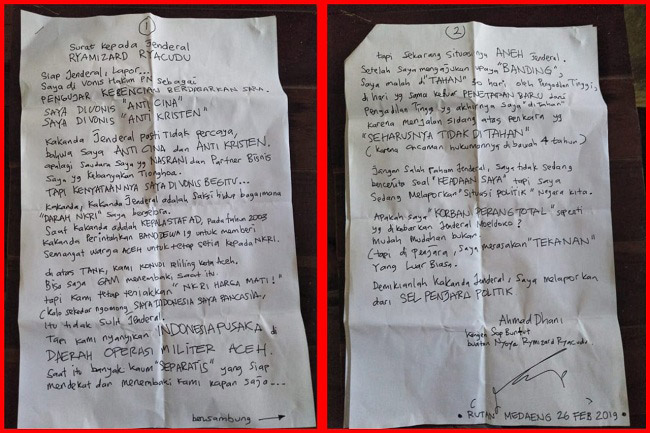 1
Surat kepada Jenderal
RYAMIZARD RYACUDU
Siap Jenderal, Lapor...
Saya di vonis Hakim PN sebagai
PENGUJAR KEBENCIAN BERDASARKAN SARA.
SAYA DIVONIS "ANTI CINA"
SAYA DIVONIS "ANTI KRISTEN"
Kakanda Jenderal pasti tidak percaya,
bahwa saya ANTI CINA dan ANTI KRISTEN.
apalagi Saudara saya yg NASRANI dan Partner Bisnis
saya yg kebanyakan Tionghoa.
TAPI KENYATAANNYA SAYA DIVONIS BEGITU...
Kakanda, Kakanda Jenderal adalah saksi hidup bagaimana
"DARAH NKRI" saya bergelora.
Saat Kakanda adalah KEPALA STAF AD, Pada tahun 2003
Kakanda Perintahkan BAND DEWA 19 untuk memberi
Semangat warga ACEH untuk tetap setia kepada NKRI.
di atas TANK, kami KONVOI keliling kota Aceh.
Bisa saja GAM menembaki saat itu.
tapi kami tetap teriakkan "NKRI HARGA MATI!"
(kalo sekedar ngomong SAYA INDONESIA SAYA PANCASILA,
itu tidak sulit Jenderal.
Tapi kami nyanyikan INDONESIA PUSAKA di
DAERAH OPERASI MILITER ACEH.
Saat itu banyak kaum "SEPARATIS" yang siap
mendekat dan menembaki kami kapan saja...
bersambung →
2
tapi sekarang situasinya ANEH Jenderal.
Setelah saya mengajukan upaya "BANDING",
Saya malah di "TAHAN" 30 hari oleh Pengadilan Tinggi,
di hari yg sama keluar PENETAPAN BARU dari
Pengadilan Tinggi yg akhirnya saya "di tahan"
karena menjalani sidang atas perkara yg
"SEHARUSNYA TIDAK DI TAHAN"
(karena ancaman hukumannya dibawah 4 tahun)
Jangan Salah Paham Jenderal, Saya tidak sedang
bercerita soal "KEADAAN SAYA" tapi saya
Sedang Melaporkan "situasi POLITIK" Negara kita.
Apakah saya "KORBAN PERANG TOTAL" seperti
yg dikabarkan Jenderal Moeldoko?
Mudah Mudahan bukan.
(tapi di penjara, saya merasakan "TEKANAN"
Yang Luar Biasa.
Demikianlah Kakanda Jenderal, Saya melaporkan
dari SEL PENJARA POLITIK.
Ahmad Dhani
Kangen Sop Buntut
buatan Nyoya Ryamizard Ryacudu.
RUTAN MEDAENG 26 FEB 2019